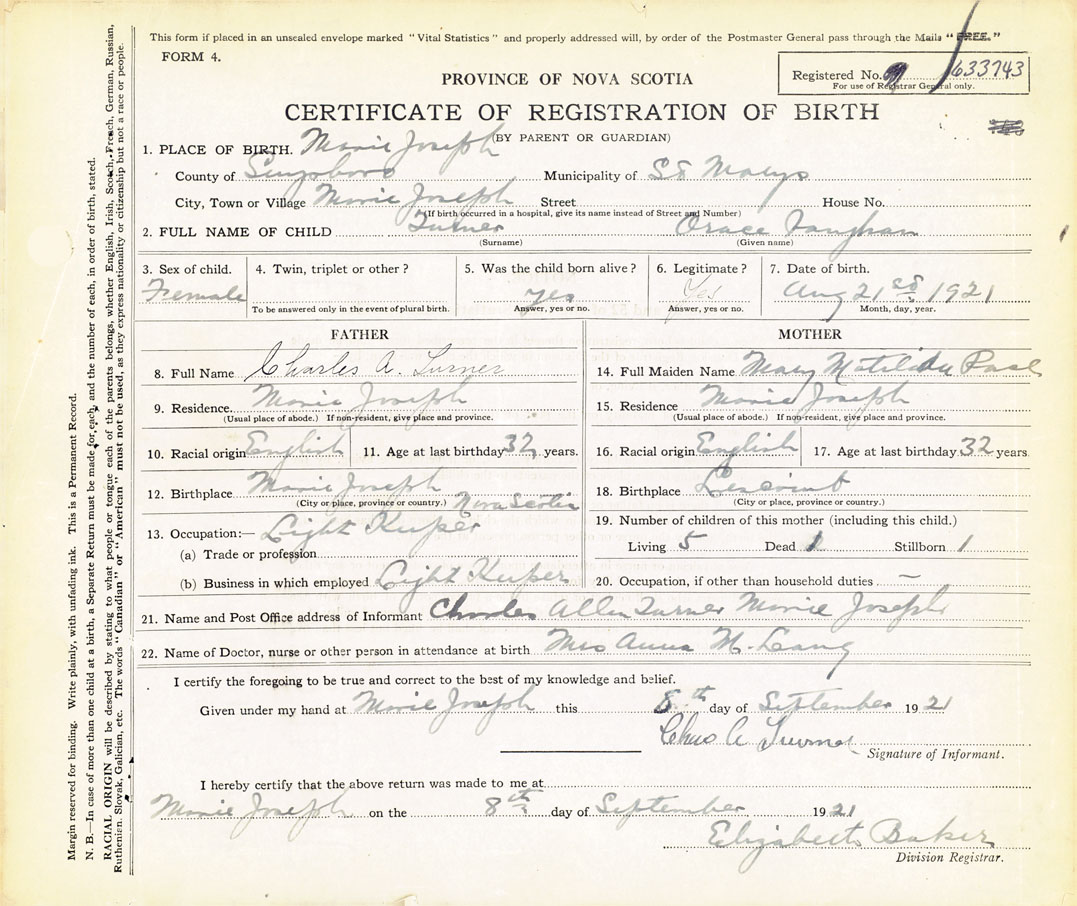 This form if placed in an unsealed envelope marked "Vital Statistics" and properly addressed will, by order of the Postmaster General pass through the Mails "FREE."
FORM 4.
PROVINCE OF NOVA SCOTIA
Registered No. 633743
For use of Registrar General only.
CERTIFICATE OF REGISTRATION OF BIRTH
(BY PARENT OR GUARDIAN)
1. PLACE OF BIRTH. Marie Joseph
County of Municipality of St Marys
City, Town or Village Marie Joseph Street House No.
(If birth occurred in a hospital, give its name instead of Street and Number)
2. FULL NAME OF CHILD Turner Vaughan
(Surname) (Given name)
3. Sex of child. 4. Twin, triplet or other? 5. Was the child born alive? 6. Legitimate? 7. Date of birth.
Female yes Yes Aug 21st 1921
To be answered only in the event of plural birth. Answer, yes or no. Answer, yes or no. Month, day, year.
FATHER
8. Full Name Charles A. Turner
9. Residence. Marie Joseph
(Usual place of abode.) If non-resident, give place and province.
10. Racial origin English 11. Age at last birthday 32 years.
12. Birthplace Marie Joseph
(City or place, province or country.) Nova Scotia
13. Occupation:— Light Keeper
(a) Trade or profession
(b) Business in which employed Light Keeper
MOTHER
14. Full Maiden Name Mary Matilda
15. Residence Marie Joseph
(Usual place of abode.) If non-resident, give place and province.
16. Racial origin English 17. Age at last birthday 32 years
18. Birthplace
(City or place, province or country.)
19. Number of children of this mother (including this child.)
Living 5 Dead 1 Stillborn 1
20. Occupation, if other than household duties —
21. Name and Post Office address of Informant Charles Allen Turner Marie Joseph
22. Name of Doctor, nurse or other person in attendance at birth Mrs Anna M.
I certify the foregoing to be true and correct to the best of my knowledge and belief.
Given under my hand at Marie Joseph this 8th day of September 1921
Chas A Turner
Signature of Informant.
I hereby certify that the above return was made to me at
Marie Joseph on the 8th day of September 1921
Elizabeth Baker
Division Registrar.
Margin reserved for binding. Write plainly, with unfading ink. This is a Permanent Record.
N. B.—In case of more than one child at a birth, a Separate Return must be made for each, and the number of each, in order of birth, stated.
RACIAL ORIGIN will be described by stating to what people or tongue each of the parents belongs, whether English, Irish, Scotch, French, German, Russian,
Ruthenian, Slovak, Galician, etc. The words "Canadian" or "American" must not be used, as they express nationality or citizenship but not a race or people.